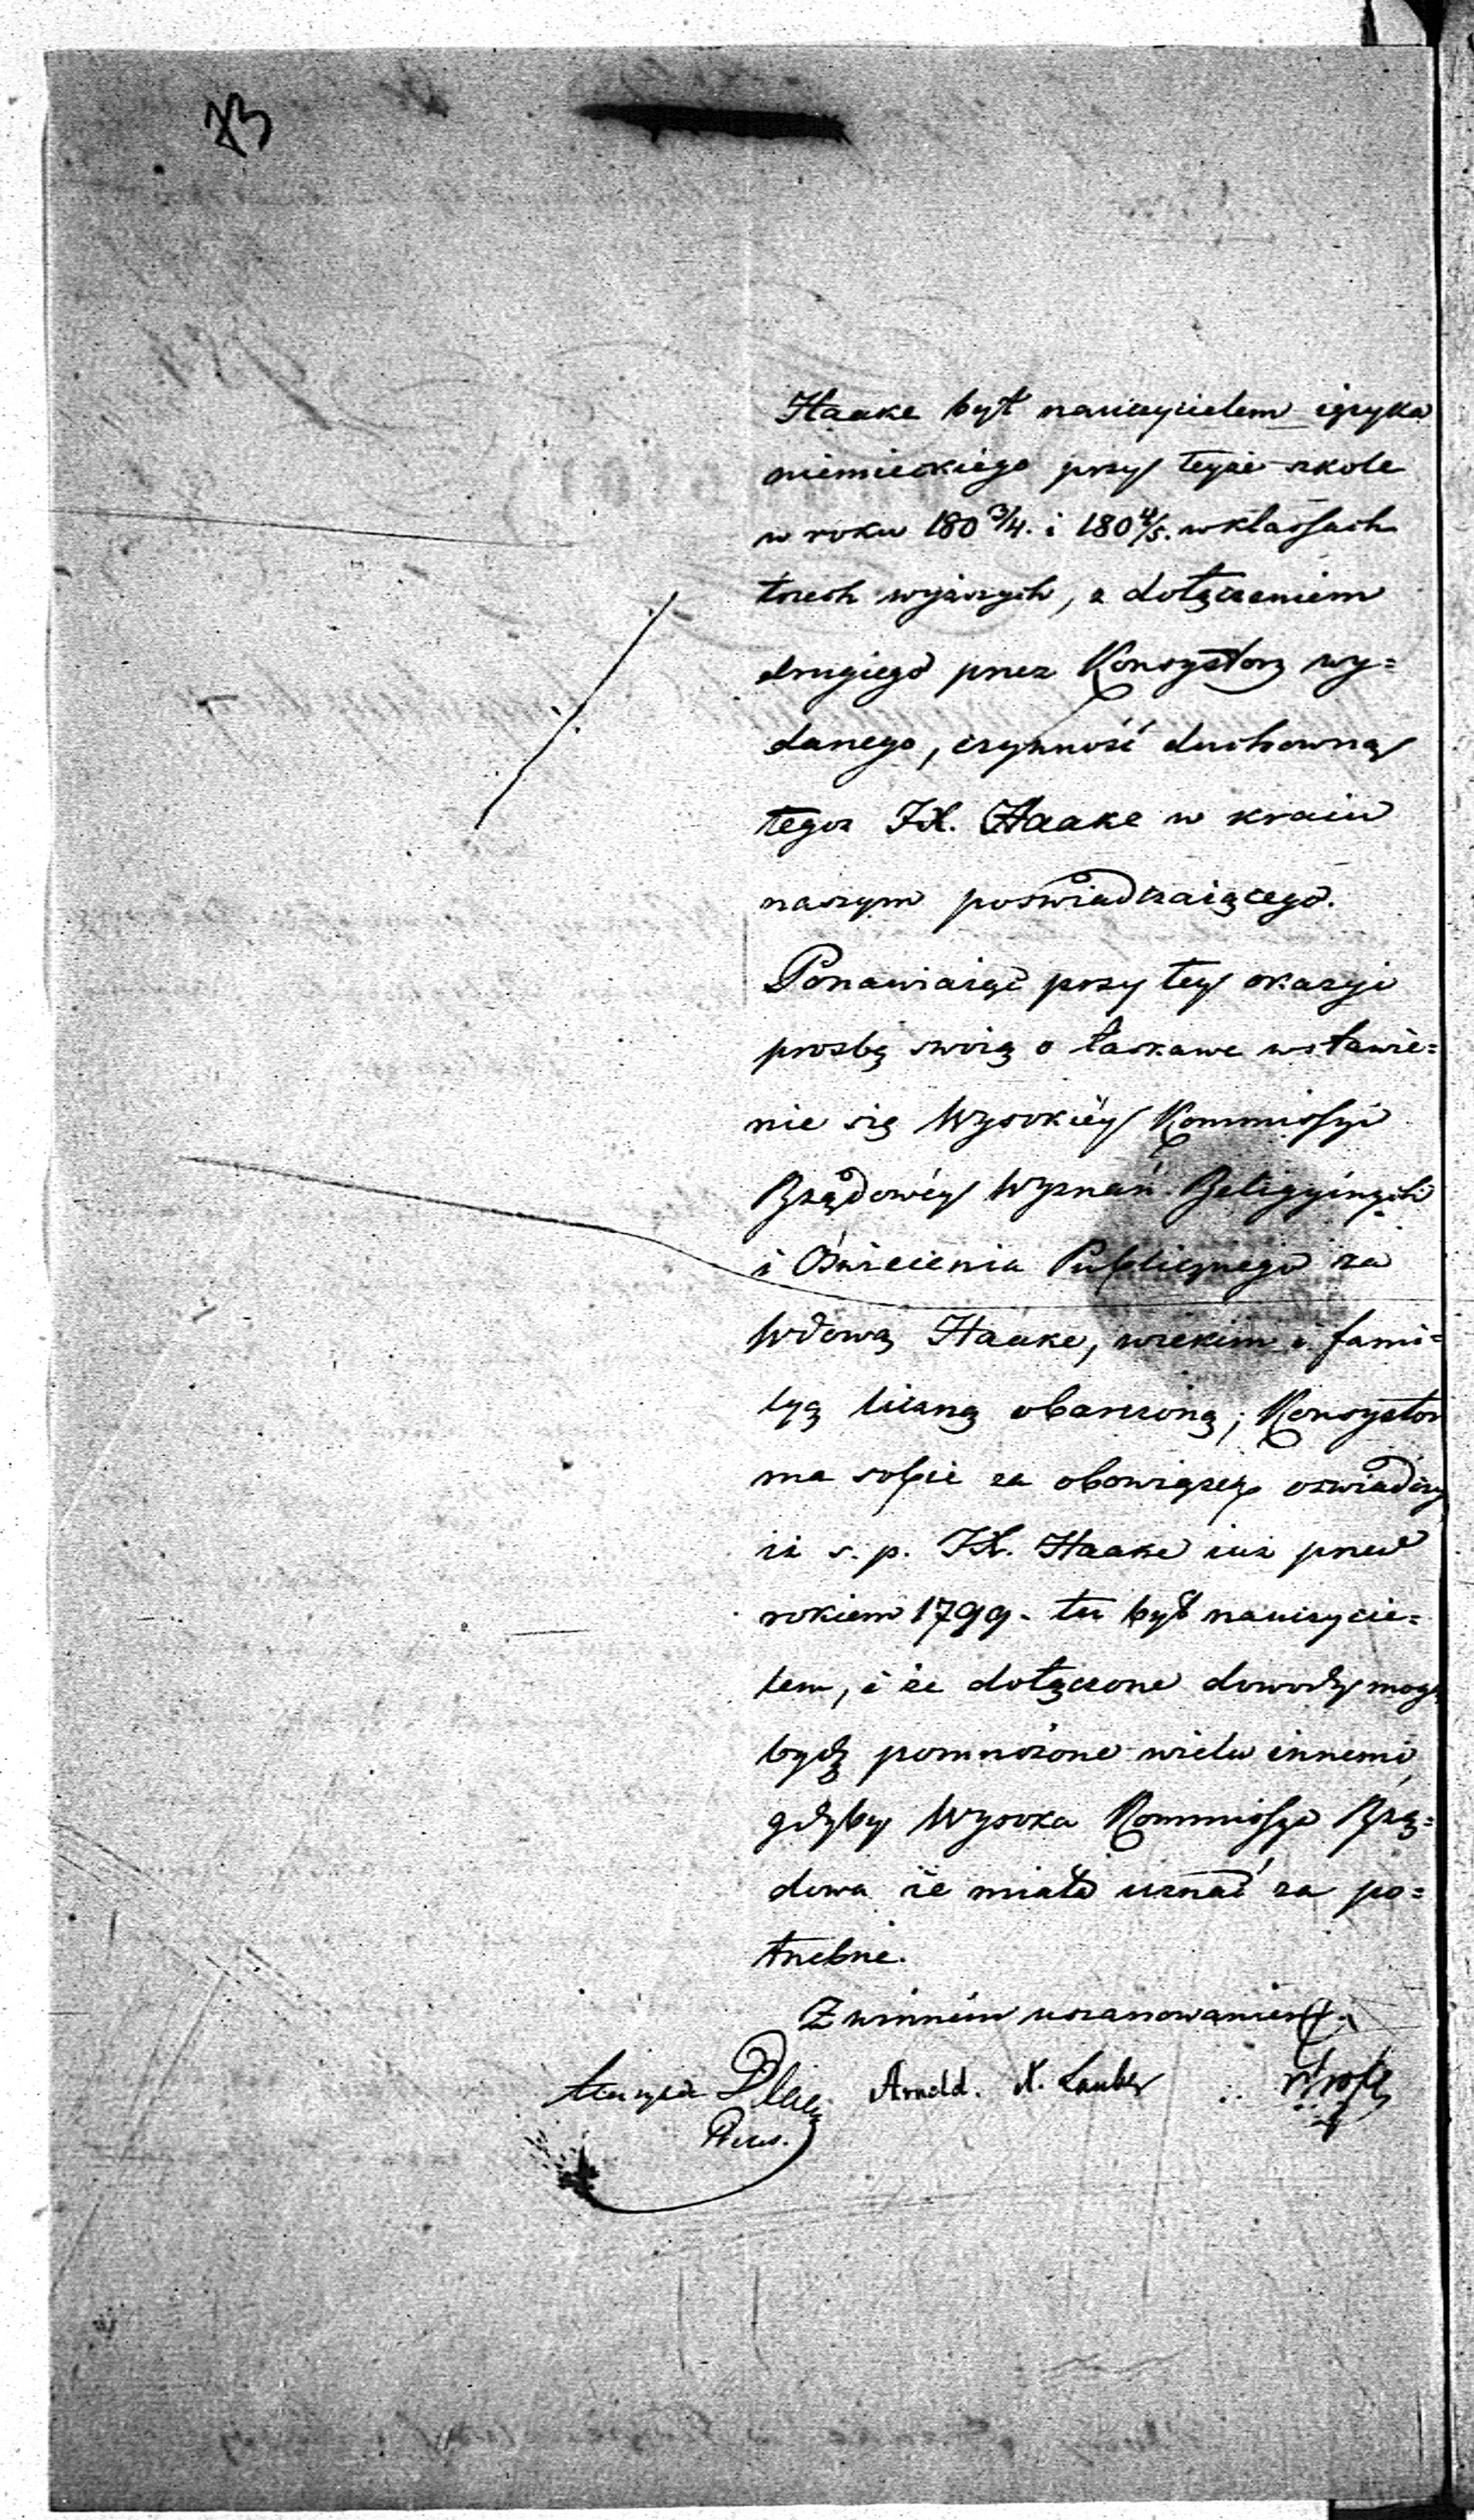 73
Haake był nauczycielem ięzyka
niemieckiego przy teyże szkole
w roku 180 3/4. i 180 4/5. w klassach
trzech wyższych, z dołączeniem
drugiego przez Konsystorz wy=
danego, czynność duchowną
tegoż JX. Haake w kraiu
naszym poświadczaiącego.
Ponawiaiąc przy tey okazyi
prozbę swoię o łaskawe wstawie=
nie się Wysokiéy Kommissyi
Rządowéy Wyznań Religyinych
i Oświecenia Publicznego za
Wdową Haake, wiekim i fami=
lyą liczną obarczoną; Konsystorz
ma sobie za obowiązek oświadczyć
iż s. p. JX. Haake iuż przed
rokiem 1799. tu był nauczycie=
lem, i że dołączone dowody mogą
bydź pomnożone wielu innemi
gdyby Wysoka Kommissya Rzą=
dowa że miała uznać za po=
trzebne.
Z winném uszanowaniem
Diehl Arnold. X. Lauber
Prezes.